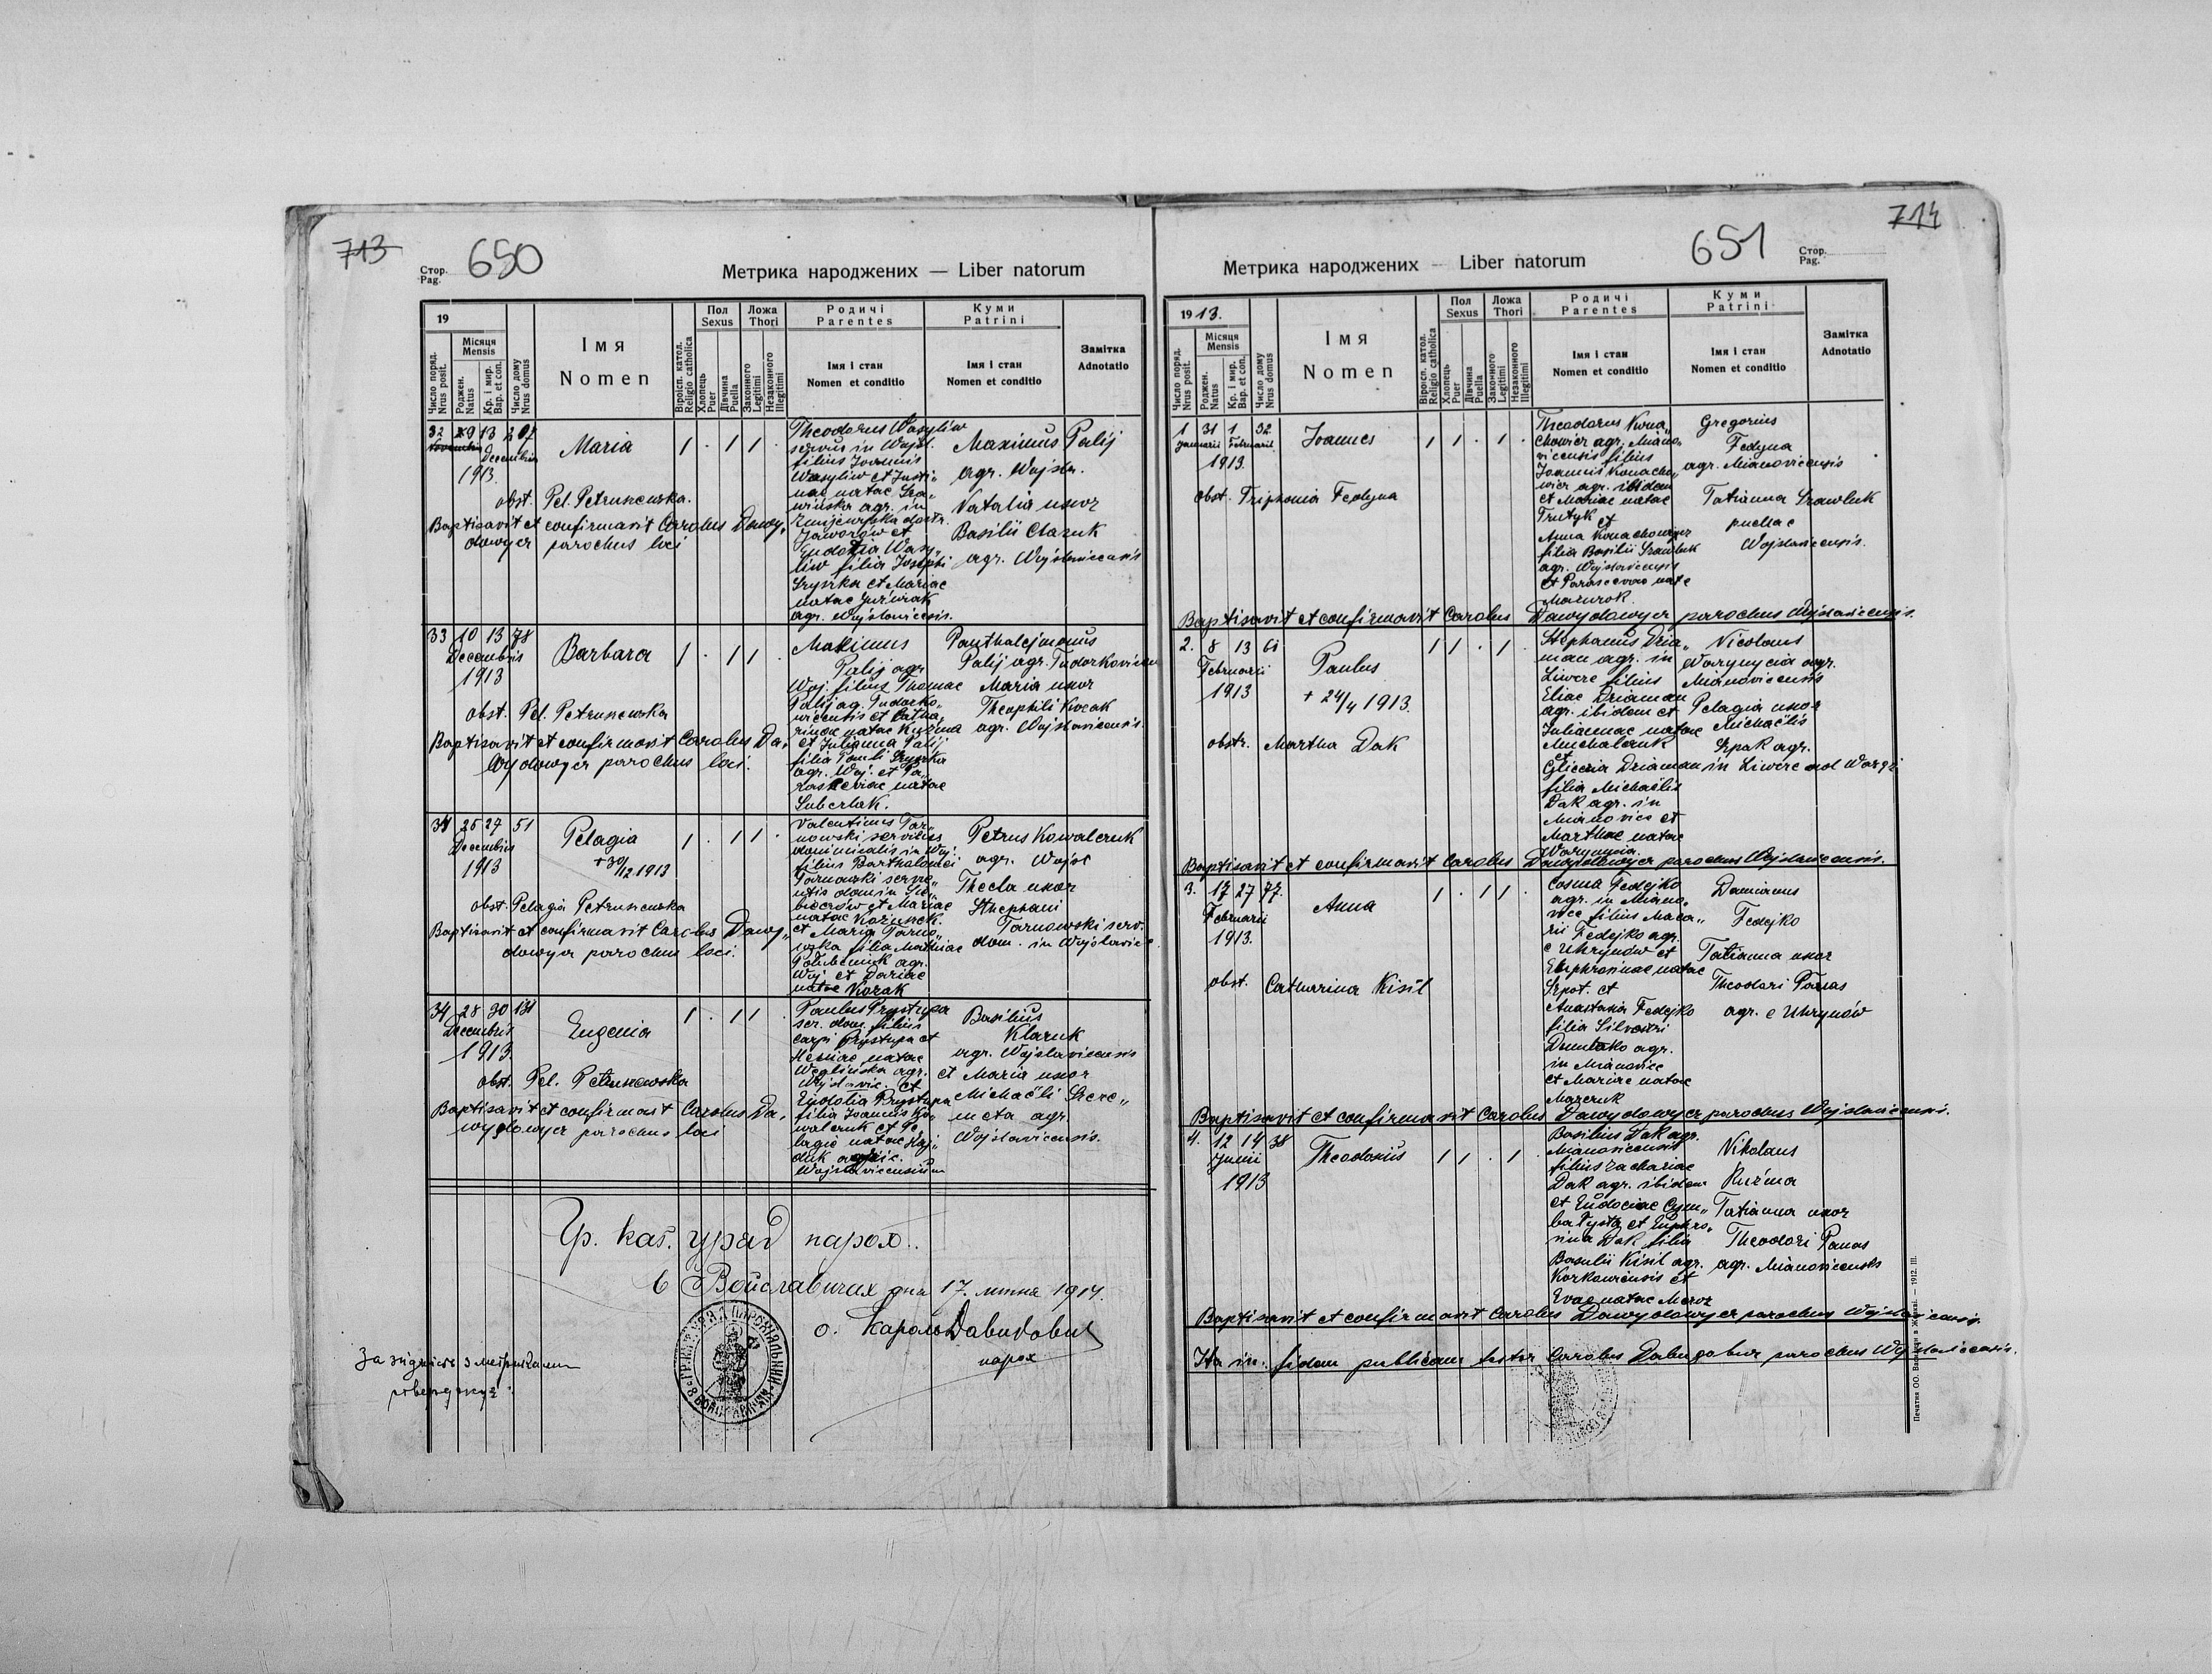 713
650
Стор.
Pag.
Метрика народжених — Liber natorum
19
Число поряд.
Nrus posit.
Місяця
Mensis
Роджен.
Natus
Кр. і мир.
Bap. et con.
Число дому
Nrus domus
Імя
Nomen
Віроісп. катол.
Religio catholica
Пол
Sexus
Хлопець
Puer
Дівчина
Puella
Ложа
Thori
Законного
Legitimi
Незаконного
Illegitimi
Родичі
Parentes
Імя і стан
Nomen et conditio
Куми
Patrini
Імя і стан
Nomen et conditio
Замітка
Adnotatio
32 29 13 207
Novembris Decembris
1913.
Maria
obst. Pel. Petrunewska.
Baptisavit et confirmavit Carolus Dawy„
dowycz parochus loci
Theodorus Wasyliw
servus in Wojsl.
filius Joannis
Wasyliw et Justi„
nae natae
agr. in
Jaworów et
Eudoxia Wasy„
liw filia Josephi
Szyszka et Mariae
natae
agr. Wojslavicensis.
Maximus Palij
agr. Wojslav.
Natalia uxor
Basilii Clazuk
agr. Wojslavicensis
33 10 13 78
Decembris
1913
Barbara
obst. Pel. Petrunewska
Baptisavit et confirmavit Carolus Da„
wydowycz parochus loci.
Maximus
Palij agr.
Woj. filius Thomae
Palij ag. Tudorko„
vicensis et Catha„
rinae natae Kuźma
et Julianna Palij
filia Pauli Szyszka
agr. Woj. et Pa„
raskeviae natae
Suberlak.
Panthalejmonus
Palij agr. Tudorkovicen
Maria uxor
Theophili Kocak
agr. Wojslavicensis.
34 25 27 51
Decembris
1913
Pelagia
+ 30/12 1913
obst. Pelagia Petrunewska
Baptisavit et confirmavit Carolus Dawy„
dowycz parochus loci.
Valentinus Tar„
nowski serviens
dominicalis in Woj.
filius Barthalomei
Tarnowski servie„
ntis domin
et Mariae
natae
et Maria Tarno„
wska filia Mathiae
agr.
Woj et Dariae
natae Kozak
Petrus Kowalczuk
agr. Wojsl
Thecla uxor
Stephani
Tarnowski serv.
dom. in Wojslavice.
34 28 30 131
Decembris
1913
Eugenia
obst. Pel. Petrunewska
Baptisavit et confirmavit Carolus Da„
wydowycz parochus loci
Paulus Prystupa
ser. dom. filius
Carpi Prystupa et
natae
Węglińska agr.
Wojslavic. et
Eudolia Prystupa
filia Joannis Ko„
walczuk et Pe„
lagie natae Haj„
duk
Wojslavicensium
Basilius
Klazuk
agr. Wojslavicensis
et Maria uxor
Michaëli Szere„
meta agr.
Wojslavicensis.
Гр. кат. уряд парох.
в Войславичах дня 17. липня 1914.
о. Кароль Давидович
парох
За згідність з метриками
651
714
Стор.
Pag.
Метрика народжених — Liber natorum
1913.
Число поряд.
Nrus posit.
Місяця
Mensis
Роджен.
Natus
Кр. і мир.
Bap. et con.
Число дому
Nrus domus
Імя
Nomen
Віроісп. катол.
Religio catholica
Пол
Sexus
Хлопець
Puer
Дівчина
Puella
Ложа
Thori
Законного
Legitimi
Незаконного
Illegitimi
Родичі
Parentes
Імя і стан
Nomen et conditio
Куми
Patrini
Імя і стан
Nomen et conditio
Замітка
Adnotatio
1 31 1 32
Januarii Februarii
1913.
Joannes
obst. Triphonia Fedyna
Theodorus Kona„
chowicz agr. Miano„
vicensis filius
Joannis Konacho„
wicz agr. ibidem
et Mariae natae
Trutyk et
Anna Konachowicz
filia Basilii Szawluk
agr. Wojslavicensis
et Parascevae nate
Mazurok.
Gregorius
Fedyna
agr. Mianovicensis
Tatianna Szawluk
puellae
Wojslavicensis.
Baptisavit et confirmavit Carolus Dawydowycz parochus Wojslavicensis.
2. 8 13 61
Februarii
1913
Paulus
+ 24/4 1913.
obstr. Martha Dak
Stephanus Dzia„
man agr. in
Liwcze filius
Eliae Dziaman
agr. ibidem et
Juliannae natae
Michalczuk
et
Gliceria Dziaman
filia Michaëlis
Dak agr. in
Mianovice et
Marthae natae
Warynycia.
Nicolaus
Warynycia agr.
Mianovicensis
Pelagia uxor
Michaëlis
Szpak agr.
in Liwcze ad Waręż
Baptisavit et confirmavit Carolus Dawydowycz parochus Wojslavicensis.
3. 17 27 77.
Februarii
1913.
Anna
obst. Catharina Kisil
Cosma Fedejko
agr. in Miano„
vice filius Maca„
rii Fedejko agr.
e Uhrynów et
Euphrosinae natae
Szpot. et
Anastasia Fedejko
filia Silvestri
agr.
in Mianovice
et Mariae natae
Mazczuk
Damianus
Fedejko
Tatianna uxor
Theodori Panas
agr. e Uhrynów
Baptisavit et confirmavit Carolus Dawydowycz parochus Wojslavicensis.
4. 12 14 38
Junii
1913
Theodosius
Basilius Dak agr.
Mianovicensis
filius Zachariae
Dak agr. ibidem
et Eudociae Cym„
bałysta et Euphro„
sina Dak filia
Basilii Kisil agr.
Korkowiensis et
Evae natae Meroz
Nikolaus
Kuźma
Tatianna uxor
Theodori Panas
agr. Mianovicensis
Baptisavit et confirmavit Carolus Dawydowycz parochus Wojslavicensis.
Ita in. fidem publicam testor Carolus parochus Wojslavicensis.
Печатня ОО. Василіян в Жовкві. — 1912. III.